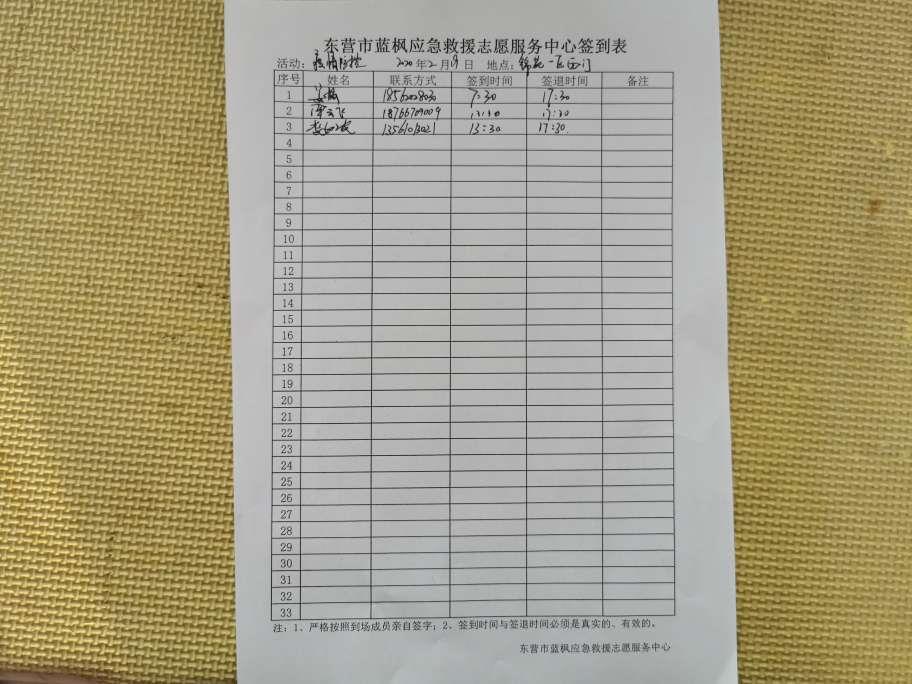 东营市蓝枫应急救援志愿服务中心签到表
活动：疫情防控 2020年2月19日 地点：锦苑一区西门
序号 姓名 联系方式 签到时间 签退时间 备注
1 7:30 17:30
2 18766709009 13:30 17:30
3 13:30 17:30
4
5
6
7
8
9
10
11
12
13
14
15
16
17
18
19
20
21
22
23
24
25
26
27
28
29
30
31
32
33
注：1、严格按照到场成员亲自签字；2、签到时间与签退时间必须是真实的、有效的。
东营市蓝枫应急救援志愿服务中心